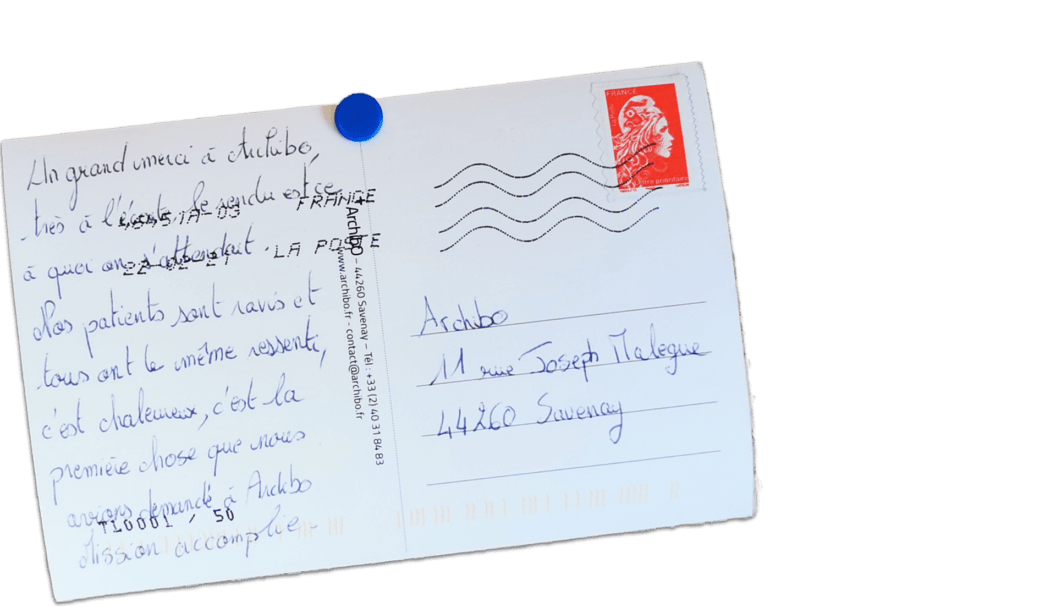 Un grand merci à Archibo,
très à l'écoute, le rendu est ce
à quoi on s'attendait.
Nos patients sont ravis et
tous ont le même ressenti,
c'est chaleureux, c'est la
première chose que nous
avions demandé à Archibo
Mission accomplie.
45451A-03 FRANCE
22-02-21 LA POSTE
TL0001 / 50
Archibo – 44260 Savenay – Tél : +33 (2) 40 31 84 83
www.archibo.fr - contact@archibo.fr
FRANCE
Lettre prioritaire
Archibo
11 rue Joseph Malegue
44260 Savenay